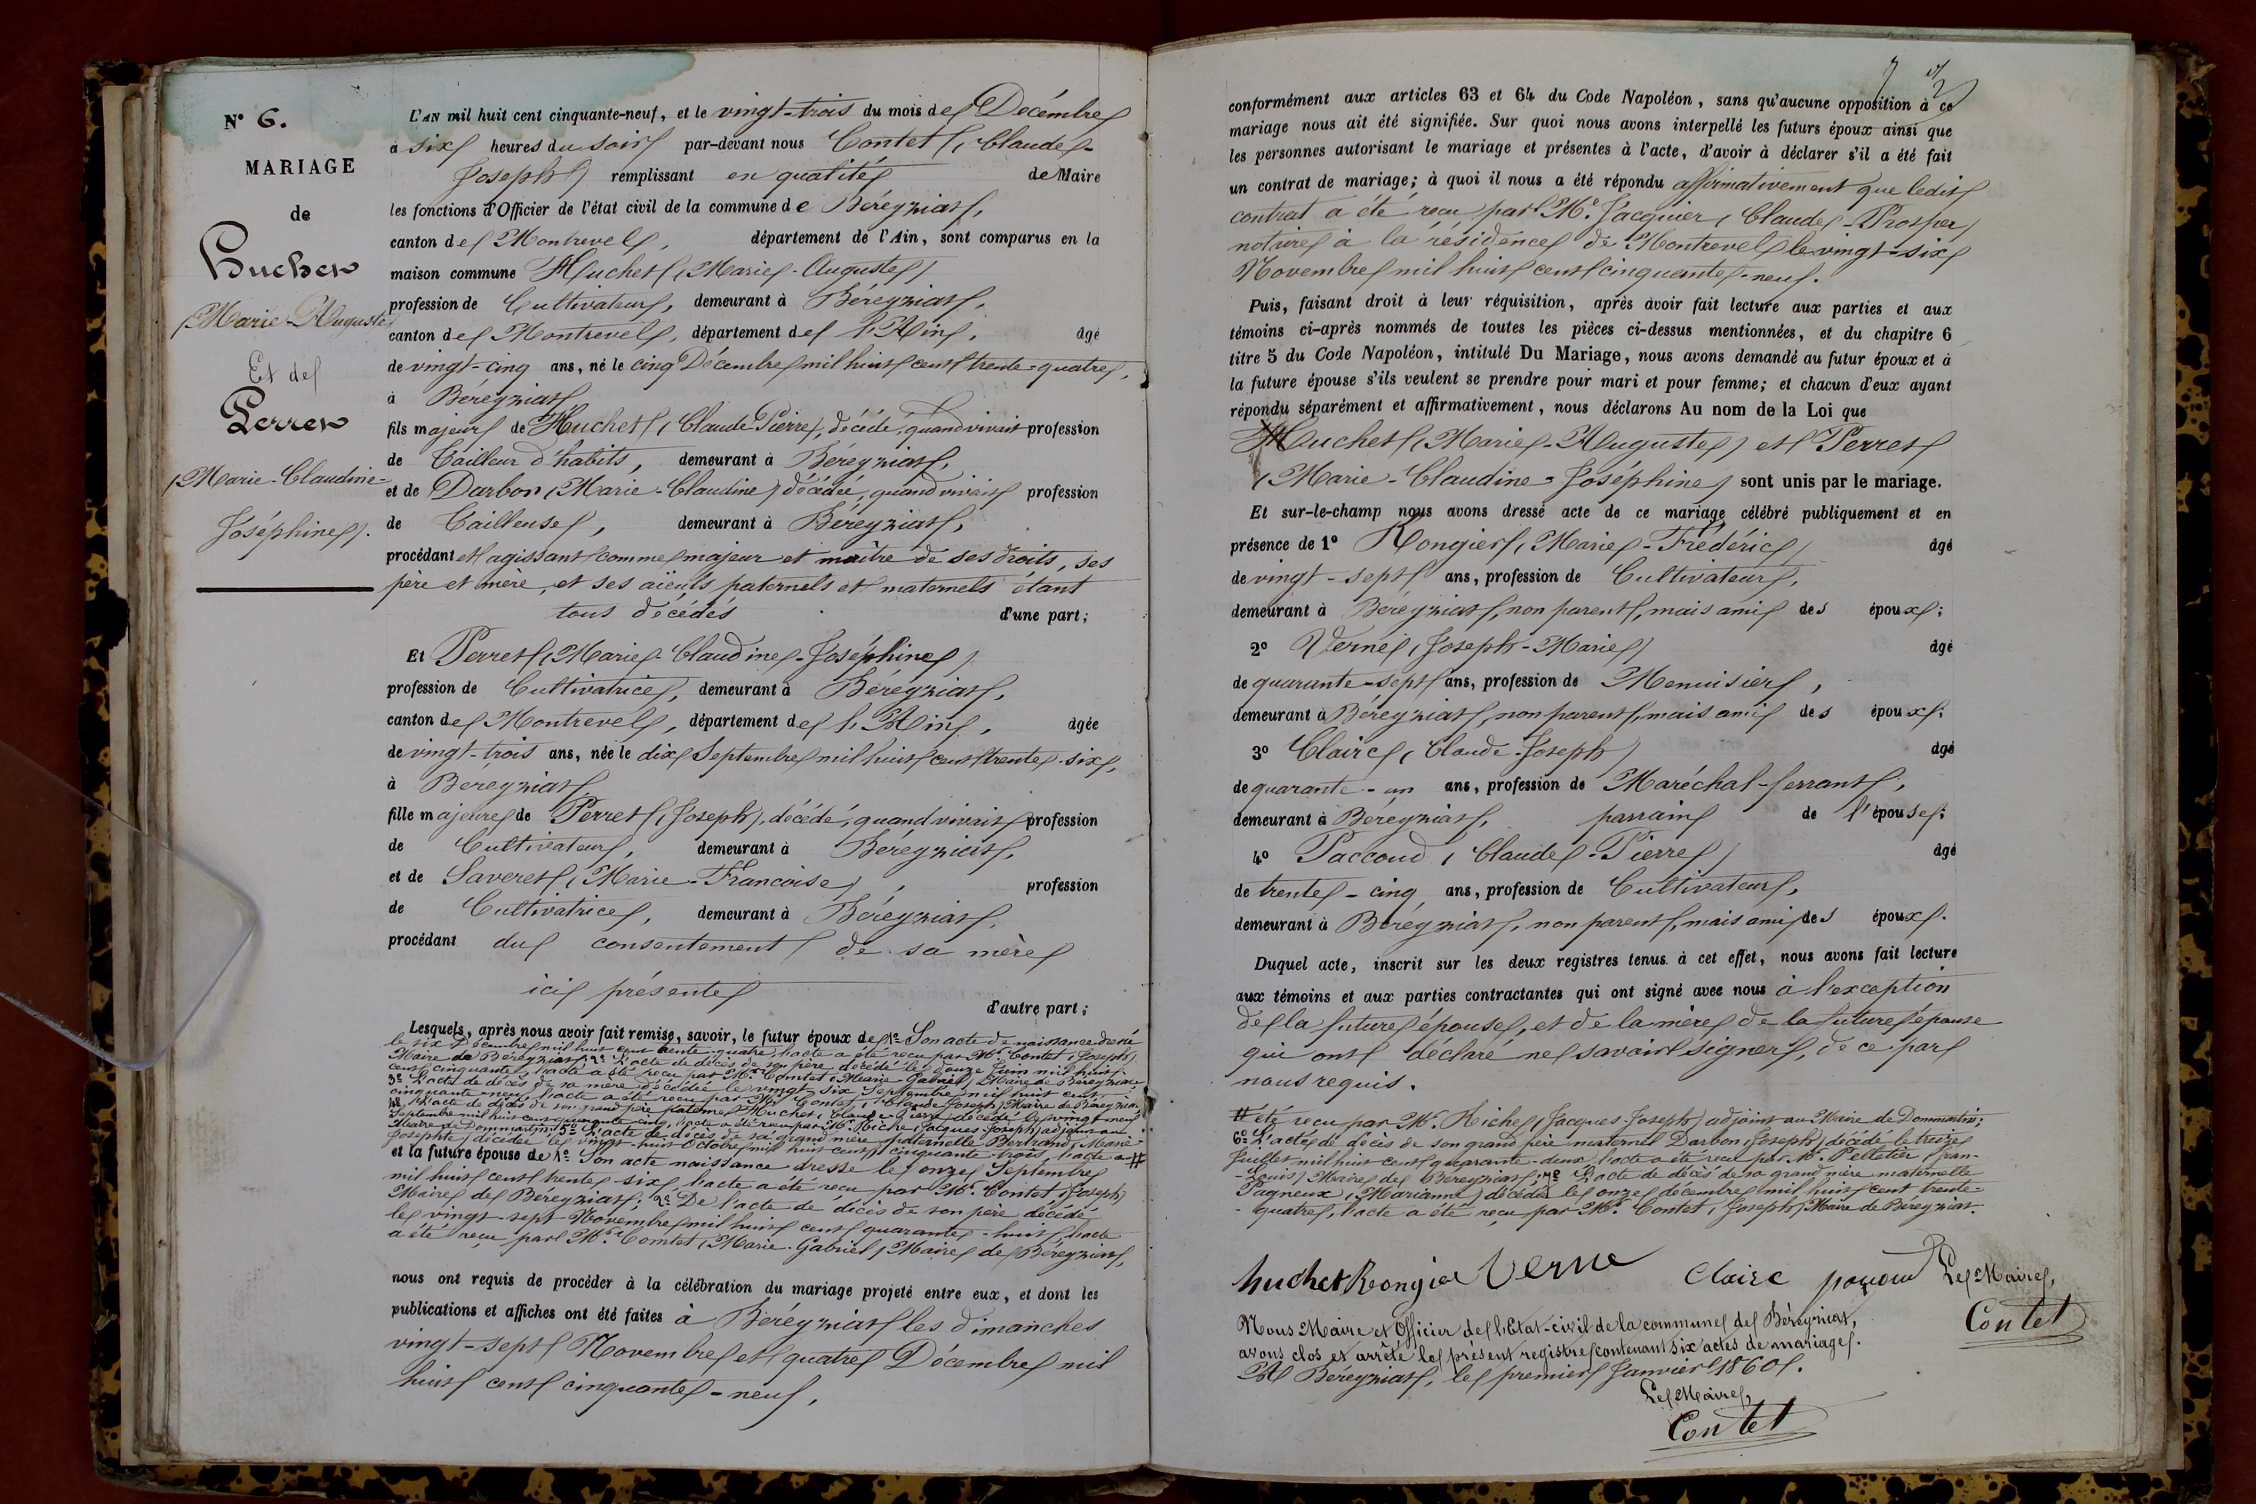 N° 6.
MARIAGE
de
Huchet
(Marie-Auguste)
Et de
Perret
(Marie-Claudine-
Joséphine).
L'AN mil huit cent cinquante-neuf, et le vingt-trois du mois de Décembre
à six heures du soir par-devant nous Contet (Claude-
Joseph) remplissant en qualité de Maire
les fonctions d'Officier de l'état civil de la commune de Béréyziat,
canton de Montrevel, département de l'Ain, sont comparus en la
maison commune Huchet (Marie-Auguste)
profession de Cultivateur, demeurant à Béréyziat,
canton de Montrevel, département de l'Ain, âgé
de vingt-cinq ans, né le cinq Décembre mil huit cent trente-quatre,
à Béréyziat
fils majeur de Huchet (Claude-Pierre), décédé, quand vivait profession
de Tailleur d'habits, demeurant à Béréyziat,
et de Darbon (Marie-Claudine) décédée, quand vivait profession
de Tailleuse, demeurant à Béréyziat,
procédant et agissant comme majeur et maître de ses droits, ses
père et mère, et ses aïeuls paternels et maternels étant
tous décédés d'une part;
Et Perret (Marie-Claudine-Joséphine)
profession de Cultivatrice, demeurant à Béréyziat,
canton de Montrevel, département de l'Ain, âgée
de vingt-trois ans, née le dix Septembre mil huit cent trente-six,
à Béréyziat,
fille majeure de Perret (Joseph), décédé, quand vivait profession
de Cultivateur, demeurant à Béréyziat,
et de Saveret (Marie-Françoise), profession
de Cultivatrice, demeurant à Béréyziat,
procédant du consentement de sa mère
ici présente
d'autre part;
Lesquels, après nous avoir fait remise, savoir, le futur époux de 1° Son acte de naissance dressé
le six Décembre mil huit cent trente-quatre l'acte a été reçu par Mr. Contet (Joseph)
Maire de Béréyziat; 2° L'acte de décès de son père décédé le douze Juin mil huit
cent cinquante, l'acte a été reçu par Mr. Comtet (Marie-Gabriel) Maire de Béréyziat
3° L'acte de décès de sa mère décédée le vingt six Septembre mil huit cent
cinquante-neuf, l'acte a été reçu par Mr. Contet, (Claude Joseph) Maire de Béréyziat
4° L'acte de décès de son grand père paternel Huchet (Claude-Pierre) décédé le vingt-neuf
Septembre mil huit cent cinquante cinq, l'acte a été reçu par Mr. Riche (Jacques-Joseph) adjoint au
Maire de Dommartin; 5° L'acte de décès de sa grand mère paternelle Bertrand, (Marie-
Josephte) décédée le vingt-huit Octobre mil huit cent cinquante-trois, l'acte a #
et la future épouse de 1° Son acte naissance dressé le onze Septembre
mil huit cent trente-six l'acte a été reçu par Mr. Contet (Joseph)
Maire de Béréyziat; 2° De l'acte de décès de son père décédé
le vingt-sept Novembre mil huit cent quarante-huit, l'acte
a été reçu par Mr. Comtet (Marie-Gabriel) Maire de Béréyziat,
nous ont requis de procéder à la célébration du mariage projeté entre eux, et dont les
publications et affiches ont été faites à Béréyziat les dimanches
vingt-sept Novembre et quatre Décembre mil
huit cent cinquante-neuf,
conformément aux articles 63 et 64 du Code Napoléon, sans qu'aucune opposition à ce
mariage nous ait été signifiée. Sur quoi nous avons interpellé les futurs époux ainsi que
les personnes autorisant le mariage et présentes à l'acte, d'avoir à déclarer s'il a été fait
un contrat de mariage; à quoi il nous a été répondu affirmativement que ledit
contrat a été reçu par Me. Jacquier (Claude-Prosper)
notaire à la résidence de Montrevel le vingt-six
Novembre mil huit cent cinquante-neuf.
Puis, faisant droit à leur réquisition, après avoir fait lecture aux parties et aux
témoins ci-après nommés de toutes les pièces ci-dessus mentionnées, et du chapitre 6
titre 5 du Code Napoléon, intitulé Du Mariage, nous avons demandé au futur époux et à
la future épouse s'ils veulent se prendre pour mari et pour femme; et chacun d'eux ayant
répondu séparément et affirmativement, nous déclarons Au nom de la Loi que
Huchet (Marie-Auguste) et Perret
(Marie-Claudine-Joséphine) sont unis par le mariage.
Et sur-le-champ nous avons dressé acte de ce mariage célébré publiquement et en
présence de 1° Rongier (Marie-Frédéric) âgé
de vingt-sept ans, profession de Cultivateur,
demeurant à Béréyziat, non parent, mais ami des époux;
2° Verne (Joseph-Marie) âgé
de quarante-sept ans, profession de Menuisier,
demeurant à Béréyziat, non parent, mais ami des époux;
3° Claire (Claude-Joseph) âgé
de quarante-un ans, profession de Maréchal-ferrant,
demeurant à Béréyziat, parrain de l'épouse;
4° Paccoud (Claude-Pierre) âgé
de trente-cinq ans, profession de Cultivateur,
demeurant à Béréyziat, non parent, mais ami des époux.
Duquel acte, inscrit sur les deux registres tenus à cet effet, nous avons fait lecture
aux témoins et aux parties contractantes qui ont signé avec nous à l'exception
de la future épouse, et de la mère de la future épouse
qui ont déclaré ne savoir signer, de ce par
nous requis.
# été reçu par Mr. Riche (Jacques-Joseph) adjoint au Maire de Dommartin;
6° L'acte de décès de son grand père maternel Darbon (Joseph) décédé le treize
Juillet mil huit cent quarante-deux l'acte a été reçu par Mr. Pelletier (Fran-
-Louis) Maire de Béréyziat; 7° L'acte de décès de sa grand mère maternelle
Pagneux (Marianne) décédée le onze décembre mil huit cent trente-
-quatre, l'acte a été reçu par Mr. Contet (Joseph) Maire de Béréyziat.
huchet Rongier Verne Claire pacoud Le Maire,
Contet
Nous Maire et Officier de l'Etat-civil de la commune de Béréyziat,
avons clos et arrêté le présent registre contenant six actes de mariage.
A Béréyziat, le premier Janvier 1860.
Le Maire,
Contet